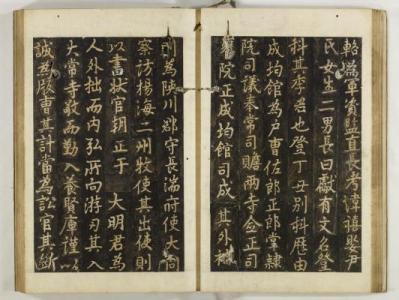 輅爲軍資監直長考諱禧娶尹
氏女生二男長曰獻有文名登
科其季君也登丁丑別科歷由
成均館爲戶曹佐郎正郎掌隸
院司議奉常司贍兩寺僉正司
院正成均館司成其外補
則爲陜川郡守長湍府使大同
察訪楊海二州牧使其出使則
以書狀官朝正于 大明君爲
人外拙而內弘所向游刃其入
太常寺敏而勤入養賢庫謹
誠爲版曹其計當爲訟官其斷